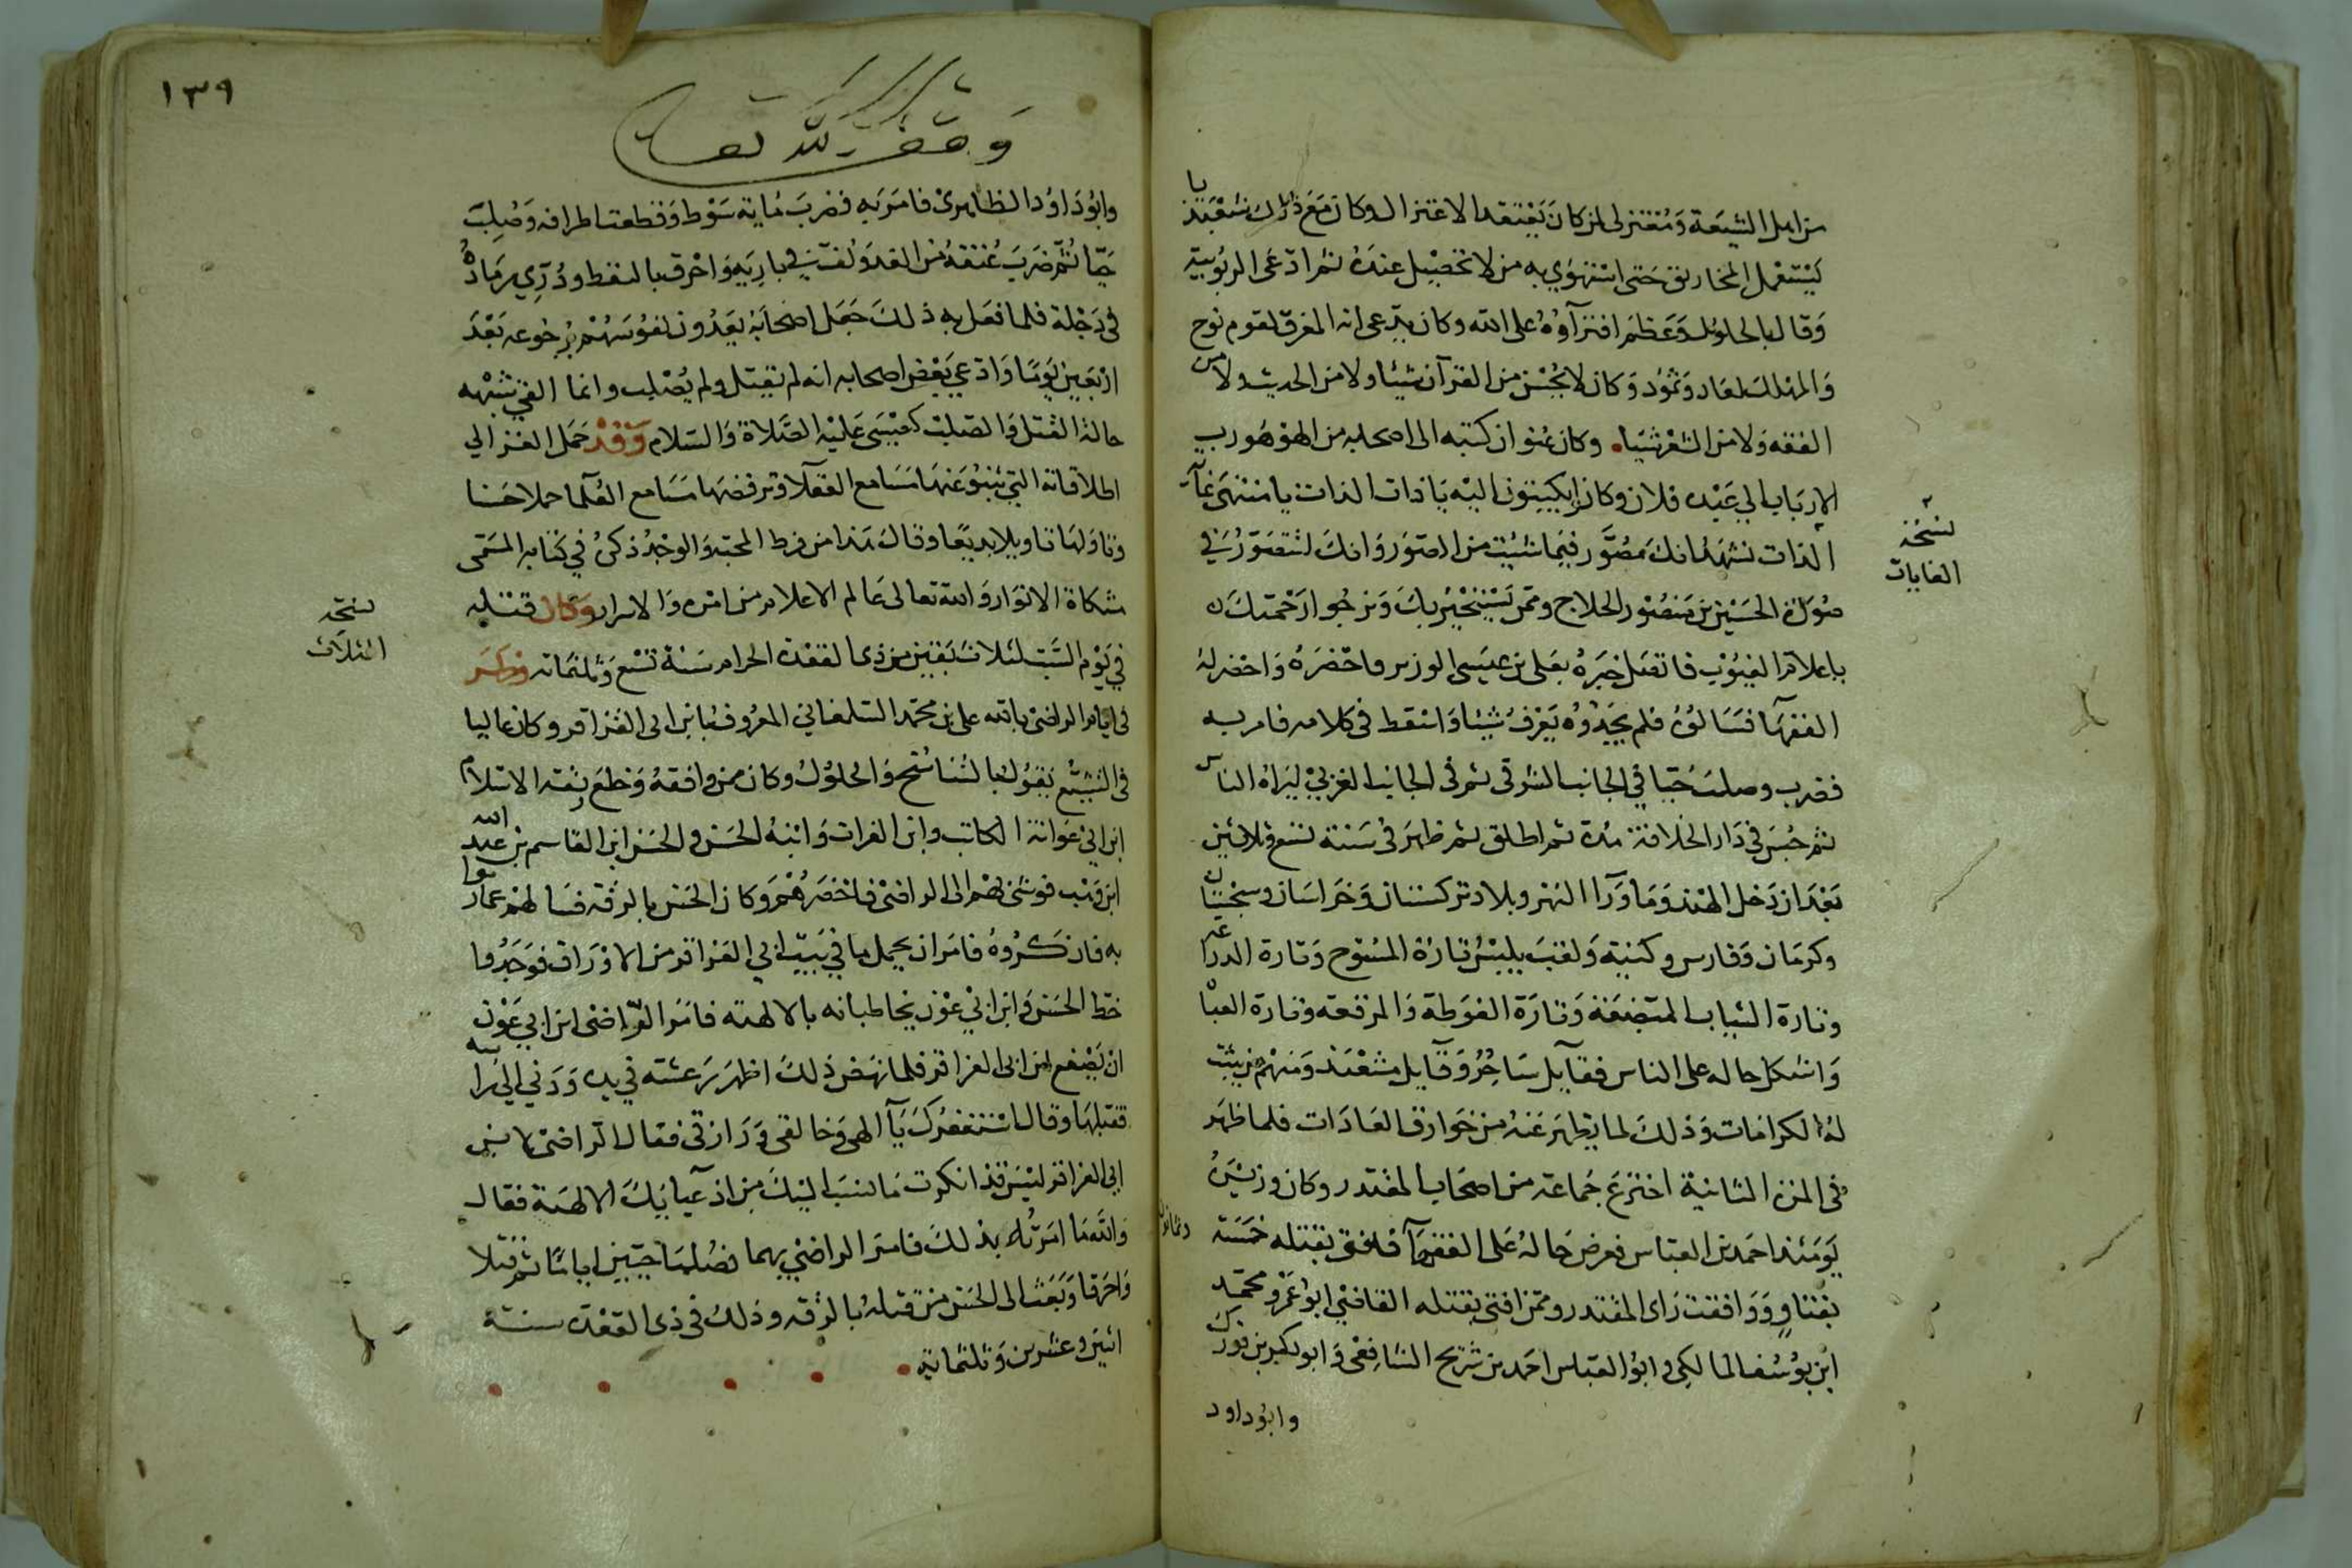 من اهل الشيعة ومعتزلى لمن كان يعتقد الاعتزال وكان مع ذلك شعبذيا
يستعمل المخاريق حتى استهوي به من لا تحصيل عنده ثم ادعى الربوبية
وقال بالحلول وعظم افتراؤه على الله وكان يدعى انه المغرق لقوم نوح
والمهلك لعاد وثمود وكان لا يحسن من القرآن شيئا ولا من الحديث ولا من
الفقه ولا من الشعر شيئا. وكان عنوان كتبه الى اصحابه من الهو هو رب
الارباب الي عبده فلان وكان يكتبون اليه يا ذات الذات يا منتهى غاية
الذات نشهد انك مصور فيما شئت من الصور وانك لتتصور في
صورة الحسين بن منصور الحلاج ونحن نستجير بك ونرجوا رحمتك
يا علام الغيوب فاتصل خبره بعلى بن عيسى الوزير فاحضره واحضر له
الفقها فسالوه فلم يجدوه يعرف شيئا واسقط فى كلامه فامر به
فضرب وصلب حيا في الجانب الشرقى ثم فى الجانب الغربي ليراه الناس
ثم حبس فى دار الخلافة مدة ثم اطلق ثم ظهر فى سنة تسع وثلاثين
بعد ان دخل الهند وما ورا النهر وبلاد تركستان وخراسان وسجستان
وكرمان وفارس وكنيته ولقب يلبس تارة المسوح وتارة الدراعه
وتارة الثياب المتضعفة وتارة الفوطة والمرقعة وتارة العبا
واشكل حاله على الناس فقآيل ساحر وقآيل مشعبذ ومنهم من يثبت
له الكرامات وذلك لما يظهر عنه من خوارق العادات فلما ظهر
فى المرة الثانية اخترع جماعة من اصحاب المقتدر وكان وزيره
يومئذ احمد بن العباس فعرض حاله على الفقهآ فافتى بقتله خمسة
وثمانون
بفتاو ووافقت راى المقتدر وممن افتى بقتله القاضي ابو عمرو محمد
ابن يوسف المالكى وابو العباس احمد بن شريح الشافعى وابو بكر بن فورك
وابو داود
نسخة
الغايات
١٣٩
وقف لله تعا
وابو داود الظاهرى فامر به فضرب ماية سوط وقطعت اطرافه وصلب
حيا ثم ضرب عنقه من الغد ولف في بارية واحرق بالنفط وذري رماده
فى دجلة فلما فعل به ذلك جعل اصحابه يعدون نفوسهم برجوعه بعد
اربعين يوما وادعي بعض اصحابه انه لم يقتل ولم يصلب وانما القي شبهه
حالة القتل والصلب كعيسى عليه الصلاة والسلام وقد حمل الغزالي
اطلاقاته التي تنبو عنها مسامع العقلآ وترفضها مسامع العلما حملا حسنا
وتاولها تاويلا بديعا وقال هذا من فرط المحبة والوجد ذكره في كتابه المسمى
مشكاة الانوار والله تعالى عالم الاعلام من امره والاسرار وكان قتله
في يوم السبت لثلاث بقين من ذى القعدة الحرام سنة تسع وثلثمائه وظهر
فى ايام الراضى بالله على بن محمد الشلمغاني المعروف بابن ابى العزاقر وكان غاليا
فى التشيع يقول بالتناسخ والحلول وكان من وافقه وخلع ربقة الاسلام
ابن ابي عوانة الكاتب وابن الفرات وابنه الحسن والحسن ابن القاسم بن عبد الله
ابن وهب فوشى بهم الى الراضى فاحضرهم وكان الحسن بالرقة فسالهم عما رموا
به فانكروه فامر ان يحمل ما في بيت ابي العزاقر من الاوراق فوجدوا
خط الحسن وابن ابي عون يخاطبانه بالالهة فامر الراضى ابن ابي عون
ان يصفع ابن ابى العزاقر فلما نهض ذلك اظهر رعشة في يده ودني الي راسه
فقبلها وقال استغفرك يآ الهى وخالقى ورازقى فقال الراضى لابن
ابى العزاقر ليس قد انكرت ما نسب اليك من ادعآيك الالهية فقال
والله ما امرته بذلك فامر الراضى بهما فصلبا حيين اياما ثم قتلا
واحرقا وبعث الى الحسن من قتله بالرقة وذلك فى ذى القعدة سنة
اثنين وعشرين وثلثماية
نسخة
الثلاث